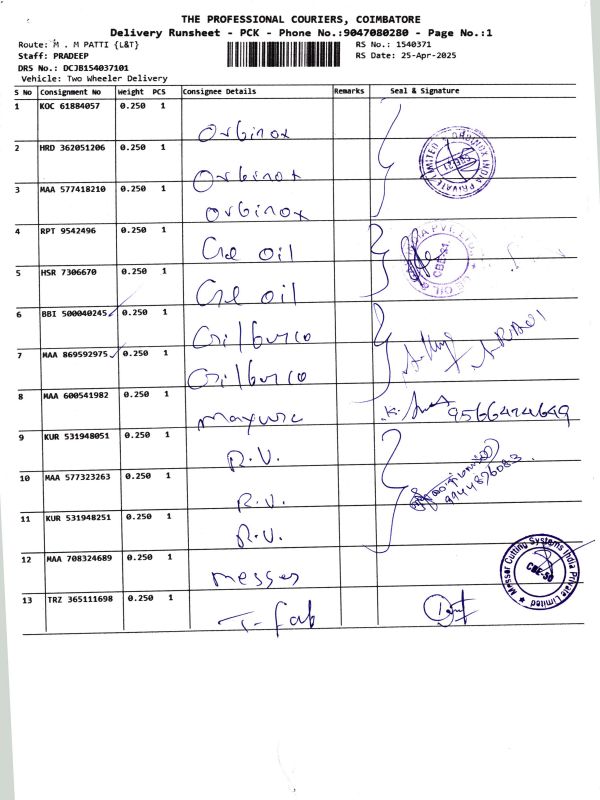 THE PROFESSIONAL COURIERS, COIMBATORE
Delivery Runsheet - PCK - Phone No.:9047080280 - Page No.:1
Route: M . M PATTI {L&T}
RS No.: 1540371
Staff: PRADEEP
RS Date: 25-Apr-2025
DRS No.: DCJB154037101
Vehicle: Two Wheeler Delivery
S No Consignment No Weight PCS Consignee Details Remarks Seal & Signature
1 KOC 61884057 0.250 1
Orbinox
2 HRD 362051206 0.250 1
Orbinox
3 MAA 577418210 0.250 1
Orbinox
4 RPT 9542496 0.250 1
oil
5 HSR 7306670 0.250 1
oil
6 BBI 500040245 0.250 1
Gilbarco
7 MAA 869592975 0.250 1
Gilbarco
8 MAA 600541982 0.250 1
9566424649
9 KUR 531948051 0.250 1
R.V.
10 MAA 577323263 0.250 1
R.V.
9944876083
11 KUR 531948251 0.250 1
R.V.
12 MAA 708324689 0.250 1
messer
Messer Cutting Systems India Private Limited
CBE-50
13 TRZ 365111698 0.250 1
T-fab
ORBINOX INDIA PRIVATE LIMITED